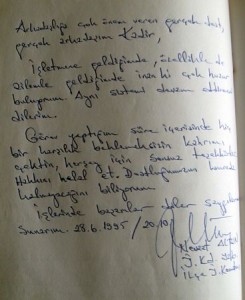 Arkadaşlığa çok önem veren gerçek dost,
gerçek arkadaşım Kadir,
İşletmene geldiğimde, özellikle de
ailenle geldiğimde inan ki çok huzur
buluyorum. Aynı sistemi devam ettirmeni
dilerim.
Görev yaptığım süre içerisinde hiç
bir karşılık beklemeksizin kahrımı
çektin, herşey için sonsuz teşekkürler.
Hakkını helal et. Dostluğumuzun burada
kalmayacağını biliyorum
İşlerinde başarılar diler saygılar
Sunarım. 28.6.1995 / 20.10
J. Kd.
İlçe J.